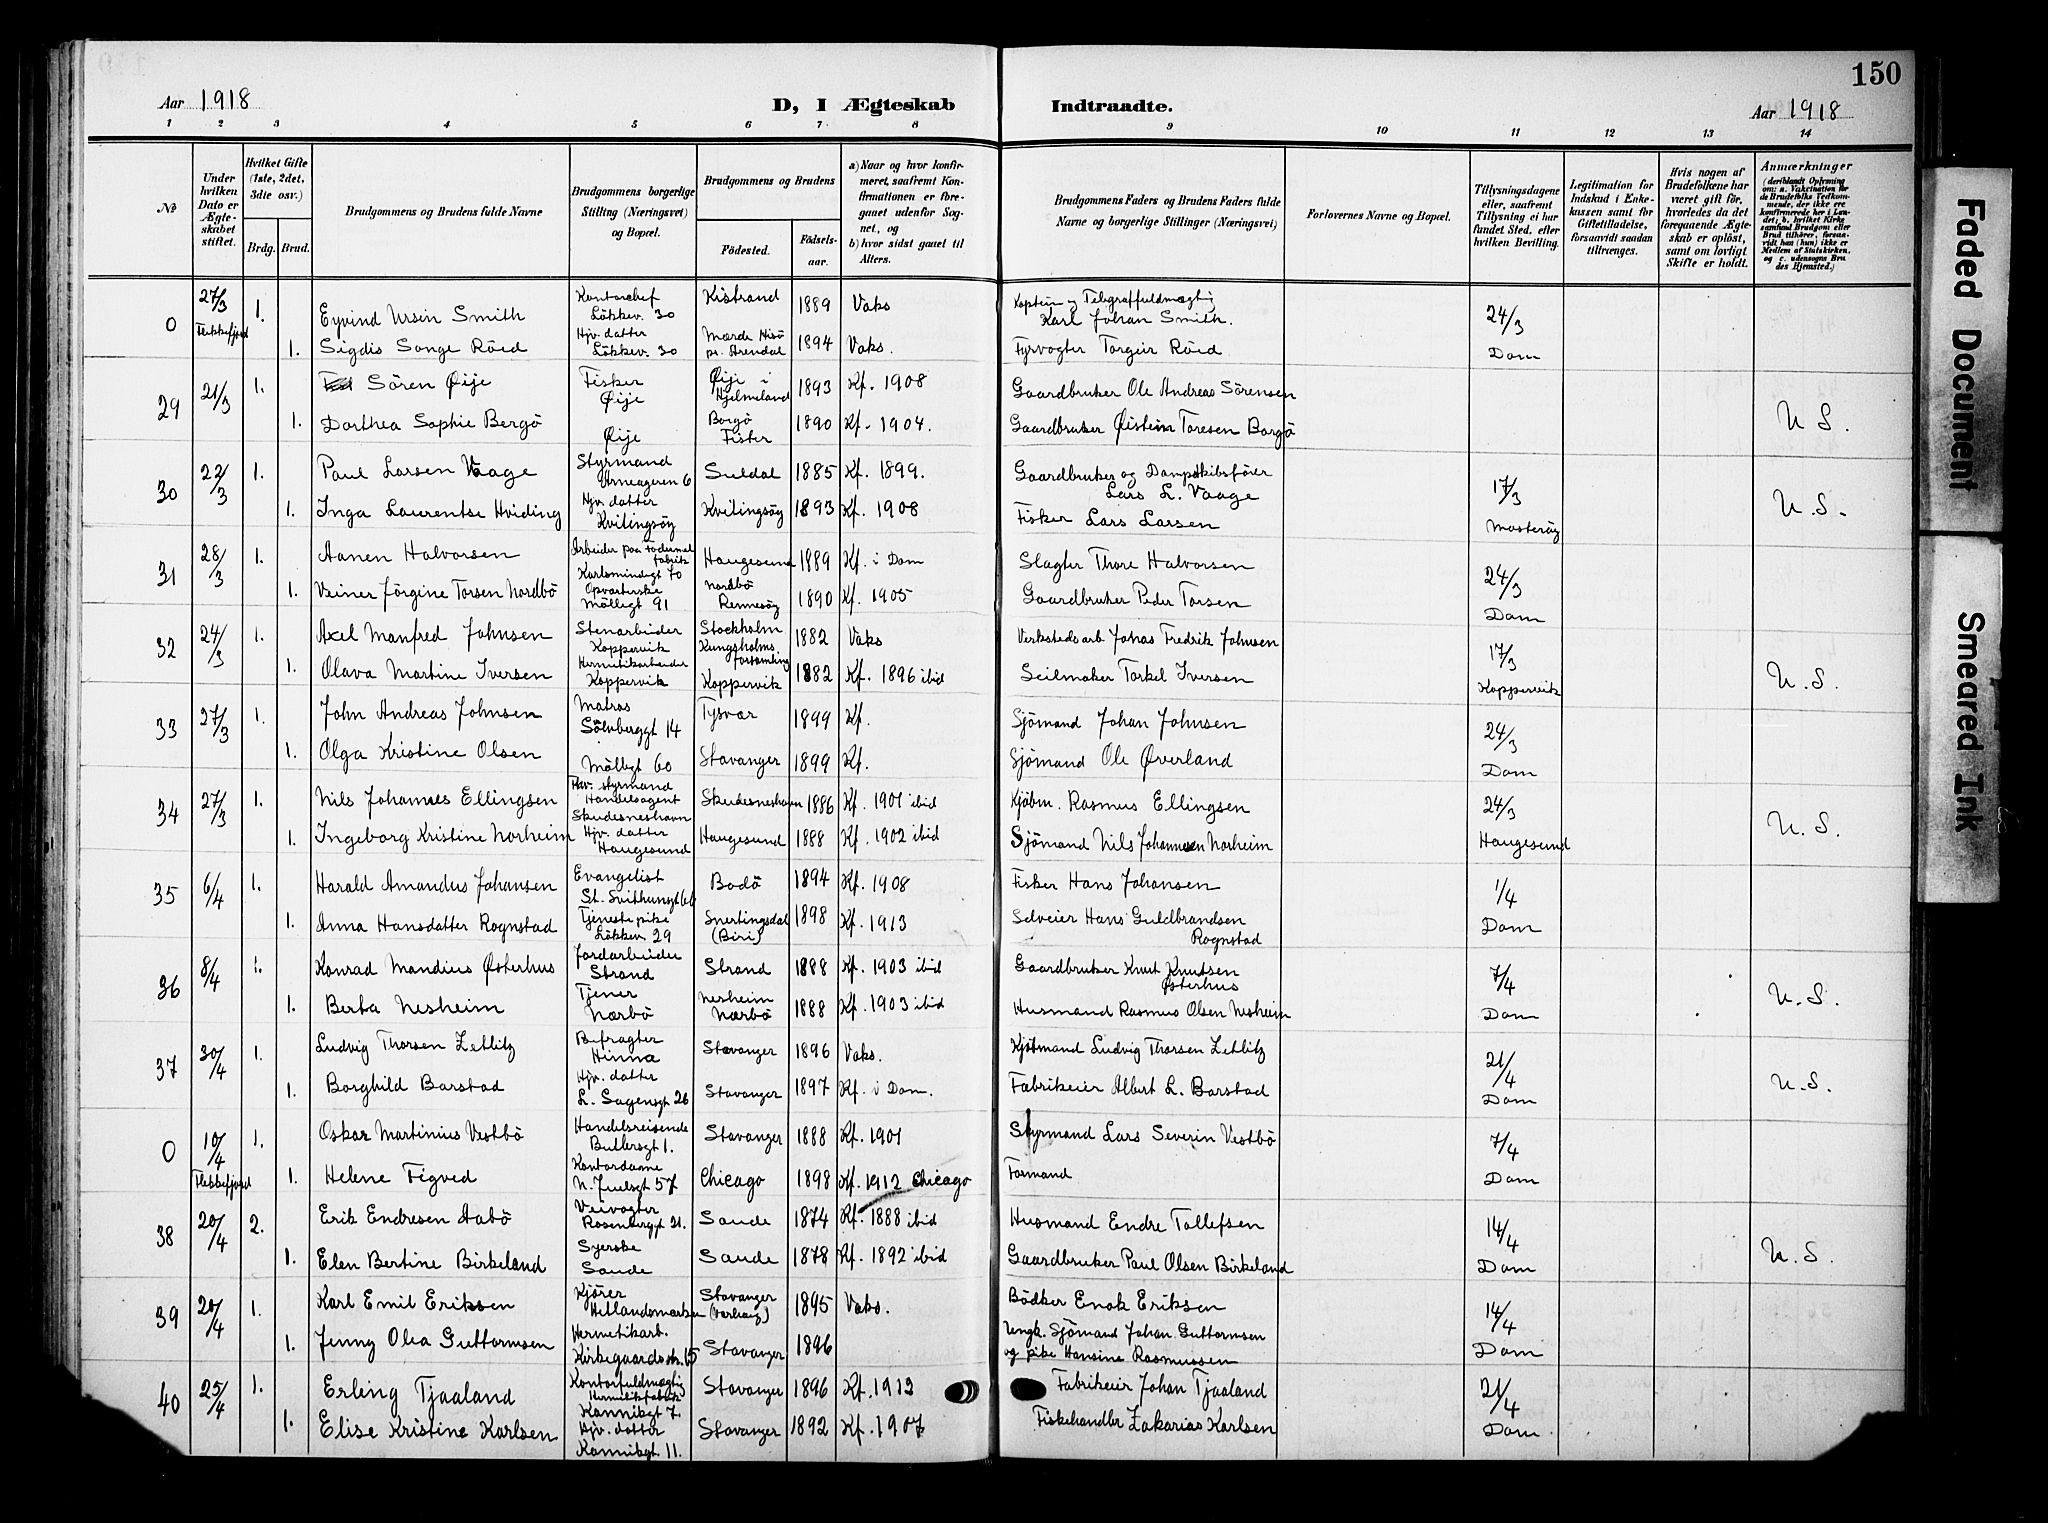 150
Aar 1918
D, I Ægteskab Indtraadte.
Aar 1918
1 2 3 4 5 6 7 8 9 10 11 12 13 14
No
Under hvilken Dato er Ægteskabet stiftet.
Hvilket Gifte (1ste, 2det, 3die osv.)
Brdg. Brud.
Brudgommens og Brudens fulde Navne
Brudgommens borgerlige Stilling (Næringsvei) og Bopæl.
Brudgommens og Brudens
Fødested. Fødselsaar.
a) Naar og hvor konfirmeret, saafremt Konfirmationen er foregaaet udenfor Sognet, og
b) hvor sidst gaaet til Alters.
Brudgommens Faders og Brudens Faders fulde Navne og borgerlige Stillinger (Næringsvei)
Forlovernes Navne og Bopæl.
Tillysningsdagene eller, saafremt Tillysning ei har fundet Sted, efter hvilken Bevilling.
Legitimation for Indskud i Enkekassen samt for Giftetilladelse, forsaavidt saadan tiltrænges.
Hvis nogen af Brudefolkene har været gift før, hvorledes da det foregaaende Ægteskab er opløst, samt om lovligt Skifte er holdt.
Anmærkninger (deriblandt Oplysning om: a. Vakcination for de Brudefolks Vedkommende, der ikke ere konfirmerede her i Landet; b. hvilket Kirkesamfund Brudgom eller Brud tilhører, forsaavidt han (hun) ikke er Medlem af Statskirken, og c. udensogns Brudes Hjemsted.)
0 27/3 Flekkefjord 1. Eyvind Ursin Smith Kontorchef Løkkev. 30 Kistrand 1889 Vaks Kaptein og Telegraffuldmægtig Karl Johan Smith. 24/3
1. Sigdis Songe Röed Hjv. datter Løkkev. 30 Mærde Hisö pr. Arendal 1894 Vaks. Fyrvogter Torgeir Röed Dom
29 21/3 1. Sören Øije Fisker Øije Øije i Hjelmeland 1893 Kf. 1908 Gaardbruker Ole Andreas Sörensen
1. Dorthea Sophie Bergö Øije Borgö Fister 1890 Kf. 1904. Gaardbruker Øistein Toresen Borgö U S.
30 22/3 1. Paul Larsen Vaage Styrmand Urneageren 6 Suldal 1885 Kf. 1899. Gaardbruker og Dampskibsförer Lars L. Vaage 17/3
1. Inga Laurentse Hviding Hjv. datter Kvitingsöy Kvitingsöy 1893 Kf. 1908 Fisker Lars Larsen Mosteröy U.S.
31 28/3 1. Aanen Halvorsen Arbeider paa fodermelfabrik Karlsmindegt 70 Haugesund 1889 Kf. i Dom Slagter Thore Halvorsen 24/3
1. Veiner Jörgine Torsen Nordbö Opvarterske Möllegt 91 Nordbö Rennesöy 1890 Kf. 1905 Gaardbruker Peder Torsen Dom
32 24/3 1. Axel Manfred Johnsen Stenarbeider Koppervik Stockholm Kungsholms forsamling 1882 Vaks Verkstedsarb Johas Fredrik Johnsen 17/3
1. Olava Martine Iversen Hermetikarbeider Koppervik Koppervik 1882 Kf. 1896 ibid Seilmaker Torkel Iversen Koppervik U.S.
33 27/3 1. John Andreas Johnsen Matros Sölvberggt 14 Tysvær 1899 Kf. Sjömand Johan Johnsen 24/3
1. Olga Kristine Olsen Möllegt 60 Stavanger 1899 Kf. Sjömand Ole Øverland Dom
34 27/3 1. Nils Johannes Ellingsen Hav. styrmand Handelsagent Skudesneshavn Skudesneshavn 1886 Kf. 1901 ibid Kjöbm. Rasmus Ellingsen 24/3
1. Ingeborg Kristine Norheim Hjv. datter Haugesund Haugesund 1888 Kf. 1902 ibid Sjömand Nils Johannesen Norheim Haugesund U.S.
35 6/4 1. Harald Amandus Johansen Evangelist St. Svithunsgt 66 Bodö 1894 Kf. 1908 Fisker Hans Johansen 1/4
1. Anna Hansdatter Rognstad Tjenestepike Løkkev. 29 Snertingsdal (Biri) 1898 Kf. 1913 Selveier Hans Guldbrandsen Rognstad Dom
36 8/4 1. Konrad Mandius Østerhus Jordarbeider Strand Strand 1888 Kf. 1903 ibid Gaardbruker Knut Knutsen Østerhus 7/4
1. Berta Nesheim Tjener Nærbö Nesheim Nærbö 1888 Kf. 1903 ibid Husmand Rasmus Olsen Nesheim Dom U.S.
37 30/4 1. Ludvig Thorsen Zetlitz Befragter Hinna Stavanger 1896 Vaks. Kjöbmand Ludvig Thorsen Zetlitz 21/4
1. Borghild Barstad Hjv. datter L. Sagensgt 26 Stavanger 1897 Kf. i Dom. Fabrikeier Albert L. Barstad Dom U.S.
0 10/4 Flekkefjord 1. Oskar Martinius Vestbö Handelsreisende Bullersgt 1. Stavanger 1888 Kf. 1901 Styrmand Lars Severin Vestbö 7/4
1. Helene Figved Kontordame N. Juelsgt 57 Chicago 1898 Kf. 1912 Chicago Formand Dom
38 20/4 2. Erik Endresen Aabö Veivogter Rosenberggt 21. Saude 1874 Kf. 1888 ibid Husmand Endre Tollefsen 14/4
1. Elen Bertine Birkeland Syerske Saude Saude 1878 Kf. 1892 ibid Gaardbruker Paul Olsen Birkeland Dom U.S.
39 20/4 1. Karl Emil Eriksen Kjörer Hillandsmarken Stavanger 1895 Vaks. Bödker Enok Eriksen 14/4
1. Jenny Olea Guttormsen Hermetikarb. Kirkegaardsstr. 65 Stavanger 1896 Ungk. Sjömand Johan Guttormsen og pike Hansine Rasmussen Dom
40 25/4 1. Erling Tjaaland Kontorfuldmægtig Hermetikfabrik Kannikgt 7. Stavanger 1896 Kf. 1912 Fabrikeier Johan Tjaaland 21/4
1. Elise Kristine Karlsen Hjv. datter Kannikgt. 11. Stavanger 1892 Kf. 1907 Fiskehandler Zakarias Karlsen Dom
Faded Document
Smeared Ink